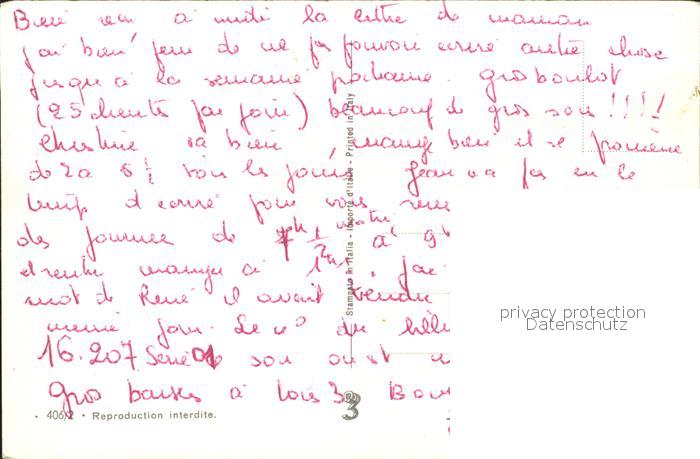 Bien reçu à midi la lettre de maman
j'ai bien peur de ne pas pouvoir écrire autre chose
jusqu'à la semaine prochaine. gros boulot
(25 clients par jour) beaucoup de gros sous !!!!
Christine va bien, mange bien il se promène
de 2 à 6 1/2 tous les jours. Jean n'a pas eu le
temps d'écrire pour vous
des journée de 7h 1/2 à 9
et rentre manger à 1h
mot de René il avait vendu
même jour. Le n° du
16.207 Série
gros baises à tous 3.
406/2 • Reproduction interdite.
Stampato in Italia - Importé d'Italie - Printed in Italy
3
privacy protection
Datenschutz